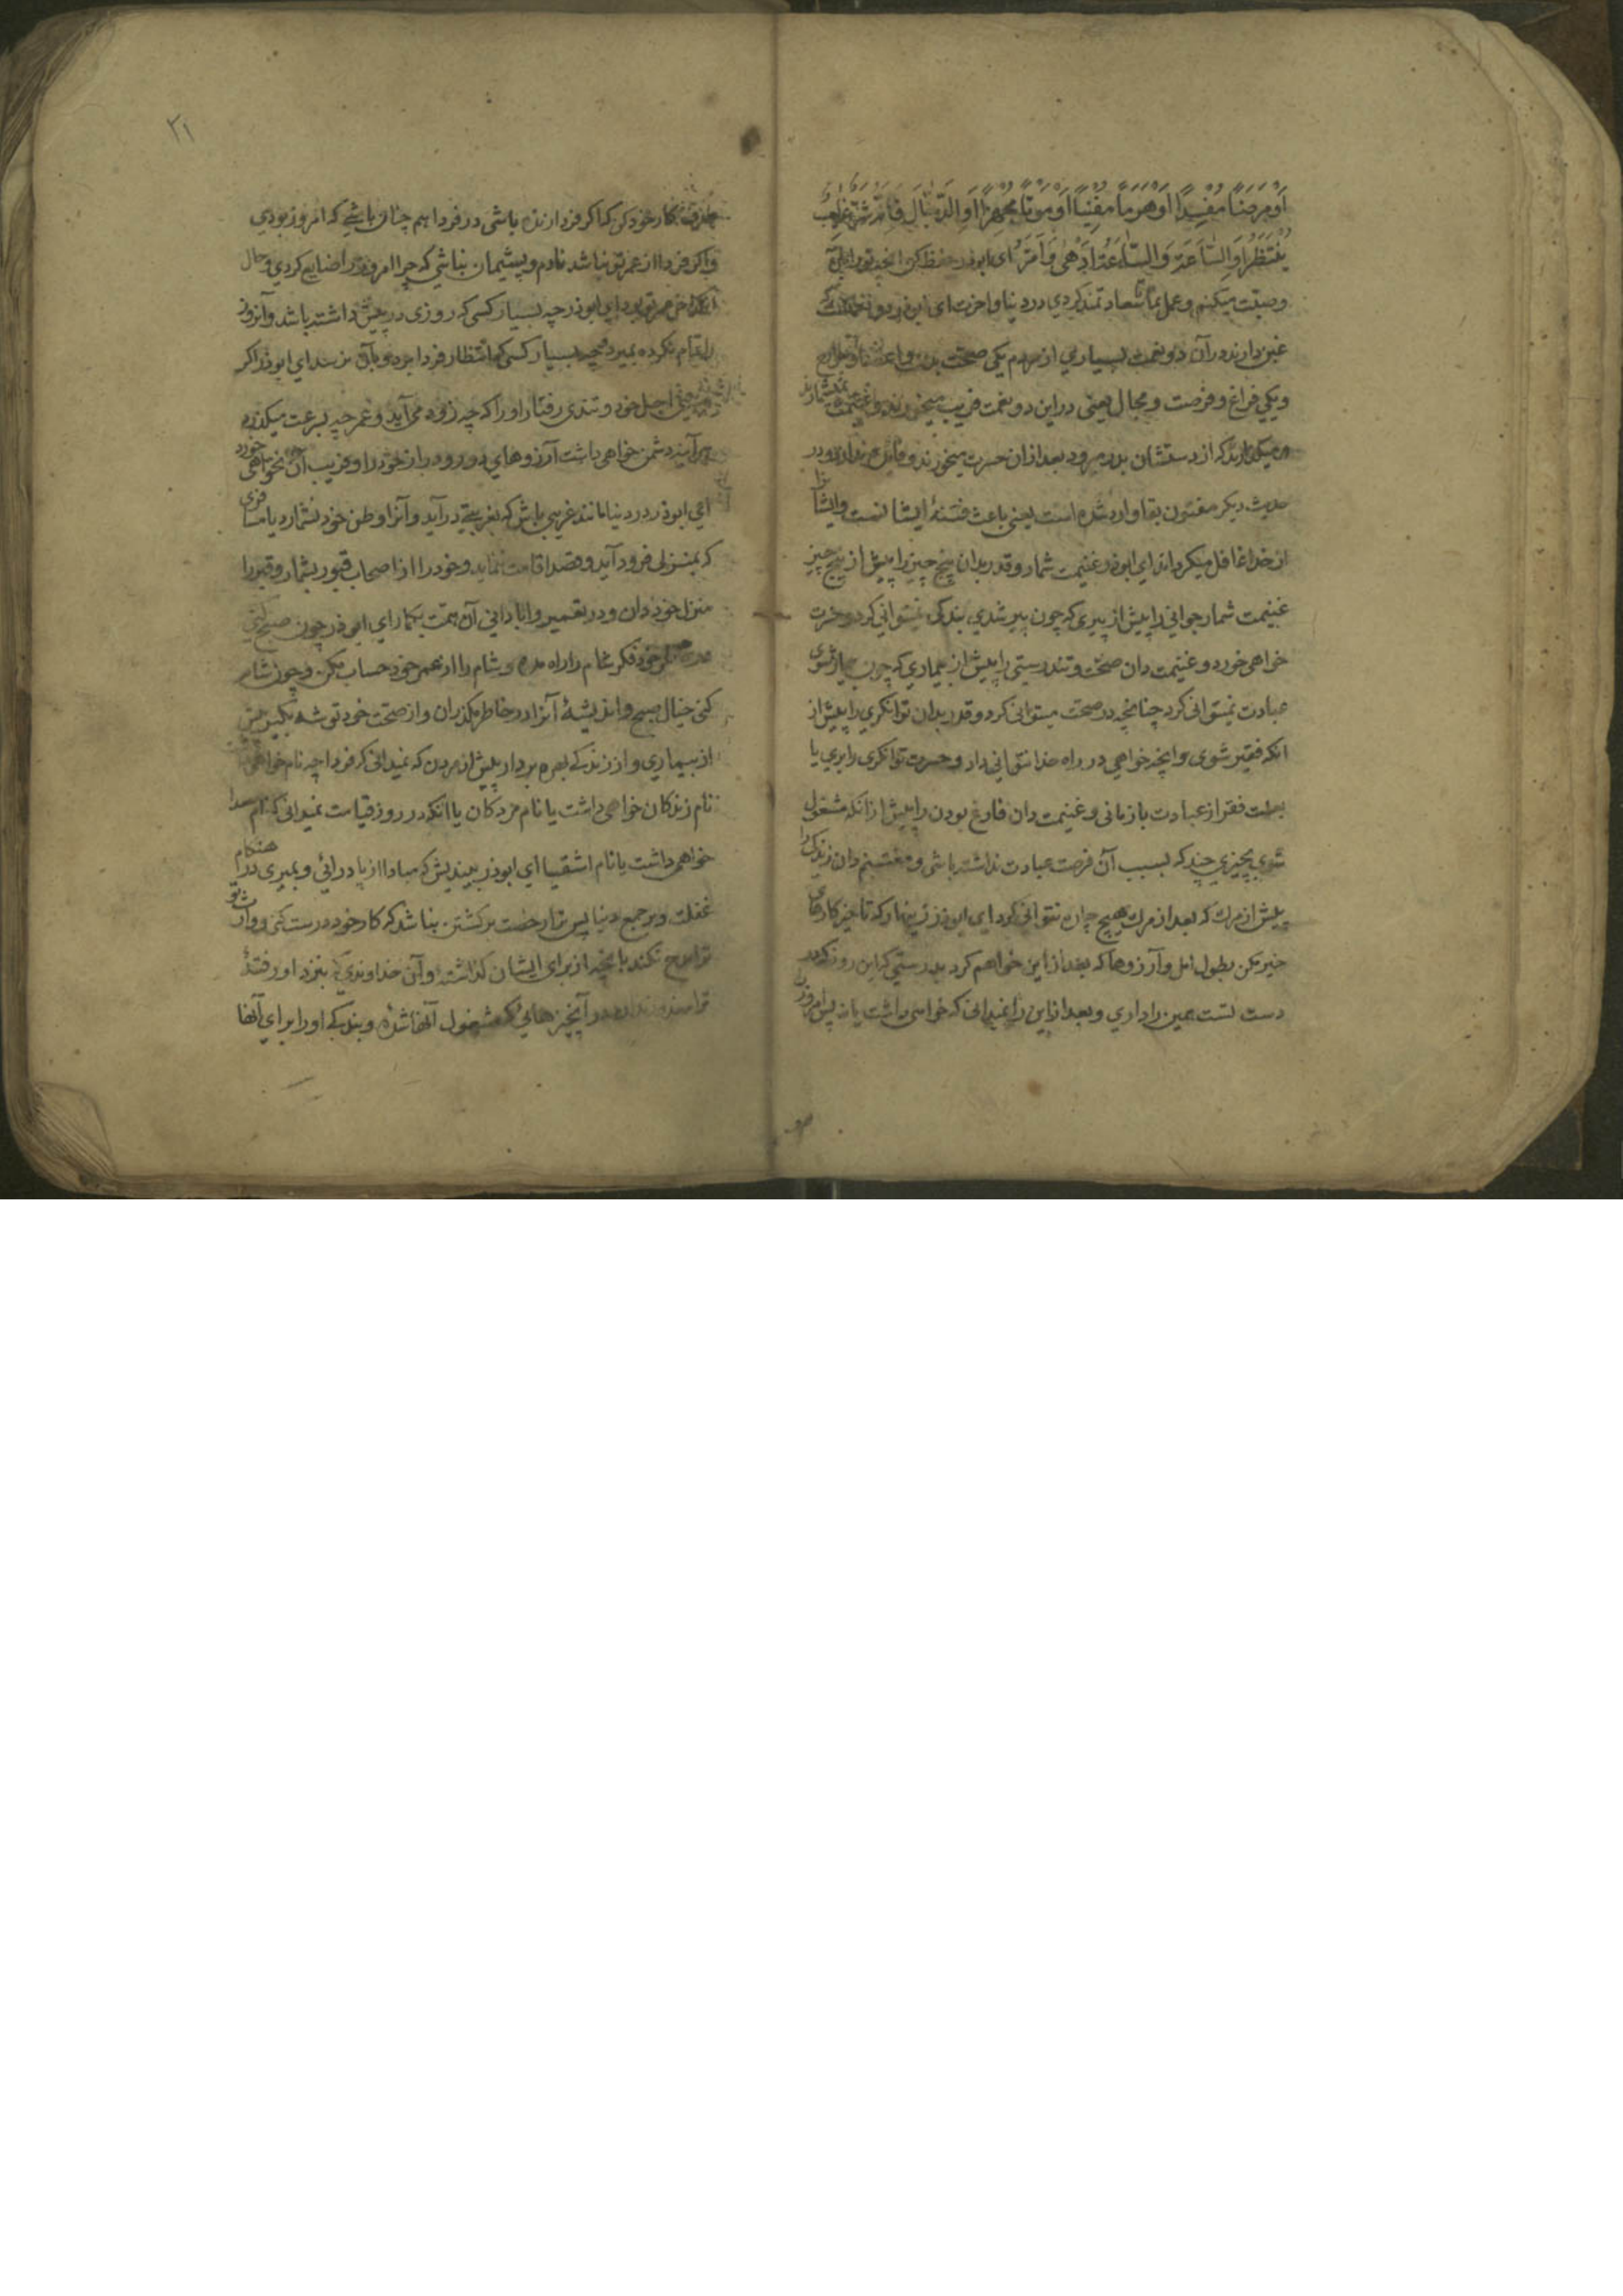 اَوْ مَرَضًا مُفْسِدًا اَوْ هَرَمًا مُفْنِیًا اَوْ مَوْتًا مُجْهِزًا اَوِ الدَّجَّالَ فَاِنَّهُ شَرُّ غَائِبٍ
یُنْتَظَرُ اَوِ السَّاعَةَ وَ السَّاعَةُ اَدْهٰی وَ اَمَرُّ ای ابوذر حفظ کن انچه تو را بآن
وصیّت میکنم و عمل نما تا سعادتمند کردی در دنیا و اخرت ای ابوذر دو نعمتست که
غبن دارند در آن دو نعمت بسیاری از مردم یکی صحّت بدن و اعضا و جوارح
و یکی فراغ و فرصت و مجال یعنی در این دو نعمت فریب میخورند و غنیمت نمیشمارند
که از دستشان بدر میرود بعد از ان حسرت میخورند و فایده ندارد و در
حدیث دیکر مفتون بقا وارد شده است یعنی باعث فتنهٔ ایشانست و ایشانرا
از خدا غافل میکرداند ای ابوذر غنیمت شمار و قدر بدان پنج چیز را پیش از پنج چیز
غنیمت شمار جوانی را پیش از پیری که چون پیر شدی بندکی نمیتوانی کرد و حسرت
خواهی خورد و غنیمت دان صحّت و تندرستی را پیش از بیماری که چون بیمار شوی
عبادت نمیتوانی کرد چنانچه در صحّت میتوانی کرد و قدر بدان توانکری را پیش از
انکه فقیر شوی و انچه خواهی در راه خدا نتوانی داد و حسرت توانکری را بری یا
بعلت فقر از عبادت بازمانی و غنیمت دان فارغ بودن را پیش از انکه مشغول
شوی بچیزی چند که بسبب آن فرصت عبادت نداشته باشی و مغتنم دان زندکی را
پیش از مرک که بعد از مرک هیچ چاره نتوانی کرد ای ابوذر زینهار که تاخیر کارهای
خیر مکن بطول امل و آرزوها که بعد از این خواهم کرد بدرستی که این روز که در
دست تست همین را داری و بعد از این را نمیدانی که خواهی داشت یا نه پس امروز را
صرف کار خود کن که اکر فردا زنده باشی در فردا هم چنان باشی که امروز بودی
و اکر فردا از عمر تو نباشد نادم و پشیمان نباشی که چرا امروز را ضایع کردی و حال
آنکه آخر عمر تو بود ای ابوذر چه بسیار کسی که روزی در پیش داشته باشد و آنروز
را تمام نکرده بمیرد و چه بسیار کسی که انتظار فردا برد و بآن نرسد ای ابوذر اکر
اجل خود و تندی رفتار او را که چه زود می آید و عمر چه بسرعت میکذرد
هر آینه دشمن خواهی داشت آرزوهای دور و دراز خود را و فریب آن نخواهی خورد
ای ابوذر در دنیا مانند غریبی باش که بغربتی در آید و آنرا وطن خود نشمارد یا مسافری
که بمنزلی فرود آید و قصد اقامت ننماید و خود را از اصحاب قبور بشمار و قبر را
منزل خود دان و در تعمیر و ابادانی آن همّت بکمار ای ابوذر چون صبح کنی
در خاطر خود فکر شام را راه مده و شام را از عمر خود حساب مکن و چون شام
کنی خیال صبح و اندیشهٔ آنرا در خاطر مکذران و از صحّت خود توشه بکیر پیش
از بیماری و از زندکی بهره بردار پیش از مردن که نمیدانی که فردا چه نام خواهی داشت
نام زندکان خواهی داشت یا نام مردکان یا انکه در روز قیامت نمیدانی که نام سعدا
خواهی داشت یا نام اشقیا ای ابوذر بیندیش که مبادا از پا درائی و بمیری در هنکام
غفلت و برجمیع دنیا پس ترا رخصت برکشتن نباشد که کار خود درست کنی و وارث تو
ترا مدح نکند بانچه از برای ایشان کذاشتهٔ و آن خداوندی که بنزد او رفتهٔ
ترا معذور ندارد در آنچیزهائی که مشغول آنها شدهٔ و بندکی او را برای آنها
۳۱